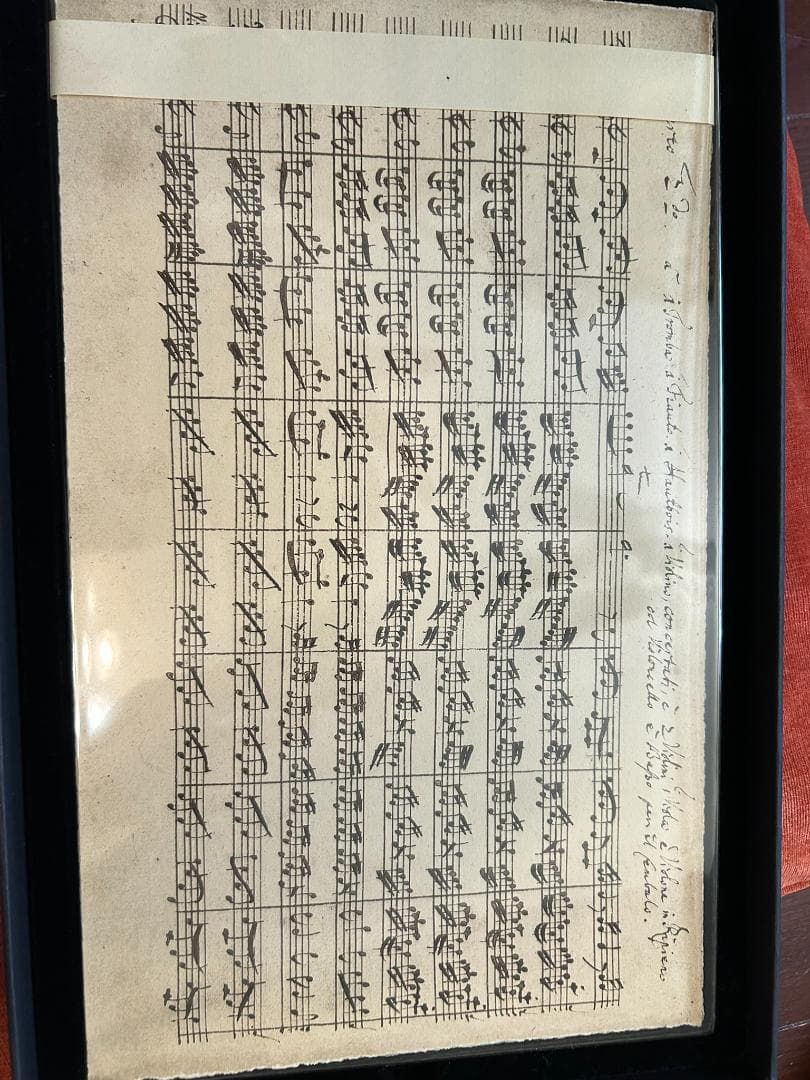 erto 2do. à 1 Tromba 1 Fiauto. 1 Hautbois. 1 Violino, concertati, è 2 Violini, 1 Viola è Violone in Ripieno
col Violoncello è Basso per il Cembalo.